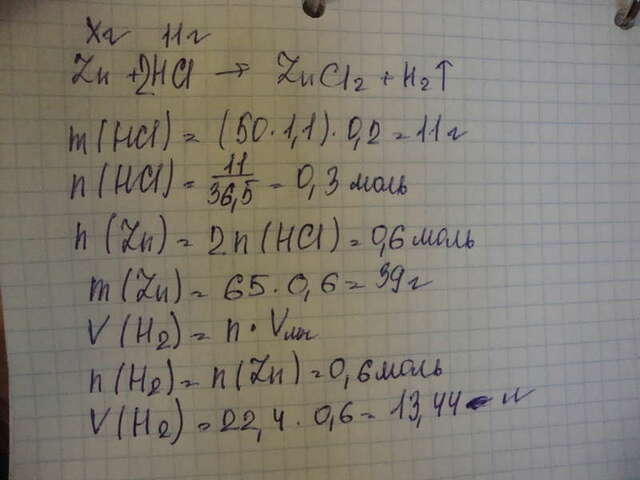 Xг 11г
Zn + 2HCl → ZnCl₂ + H₂↑
m(HCl) = (50·1,1)·0,2 = 11г
n(HCl) = 11/36,5 = 0,3 моль
n(Zn) = 2n(HCl) = 0,6 моль
m(Zn) = 65·0,6 = 39г
V(H₂) = n·Vм
n(H₂) = n(Zn) = 0,6 моль
V(H₂) = 22,4·0,6 = 13,44 л